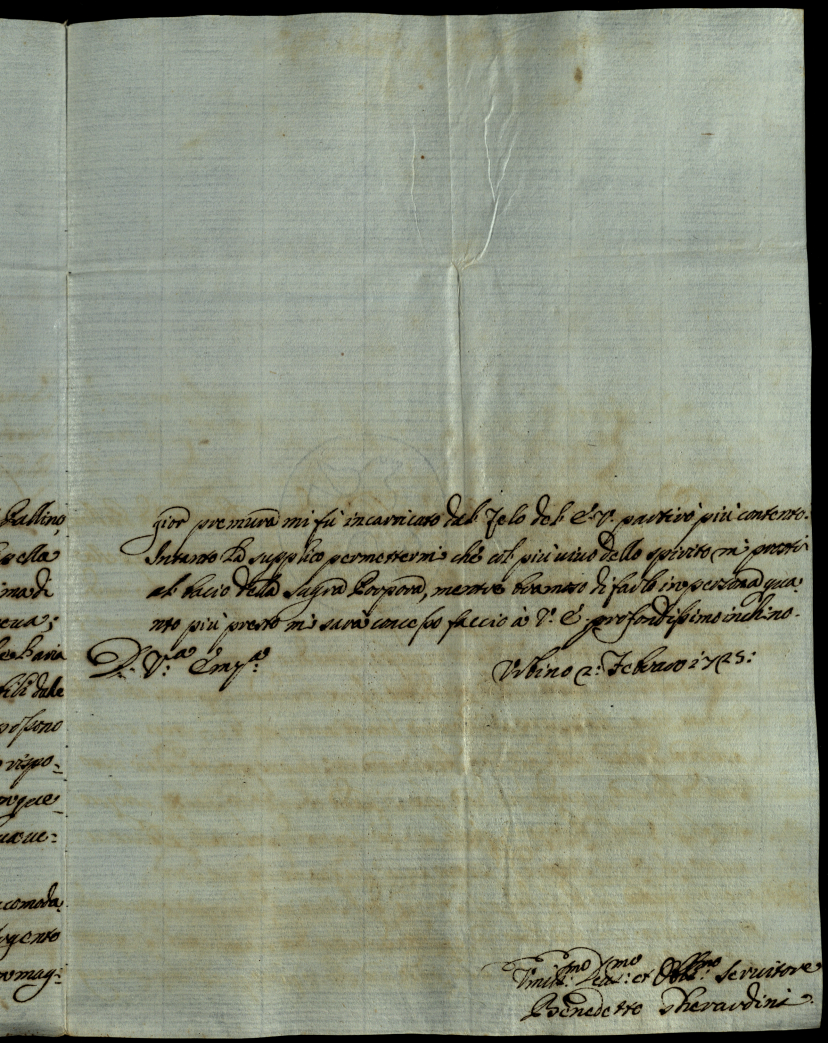 Ballino
ella
ima di
eua;
haria
dalle
possono
rispo=
ogente
romag=
gior premura mi fù incarricato dal Zelo del E. V. partirò più contento.
Intanto La supplico permettermi che col più viuo dello spirito mi porti
al bacio della Sagra Porpora, mentre bramoso di farlo in persona qua=
nto più presto mi sarà concesso faccio à V. E. profondissimo inchino.
D. V.ra Em.za
Urbino 2: Febraro 1725:
Umil:mo Deu:mo et Obbl:mo Seruitore
Benedetto Gherardini